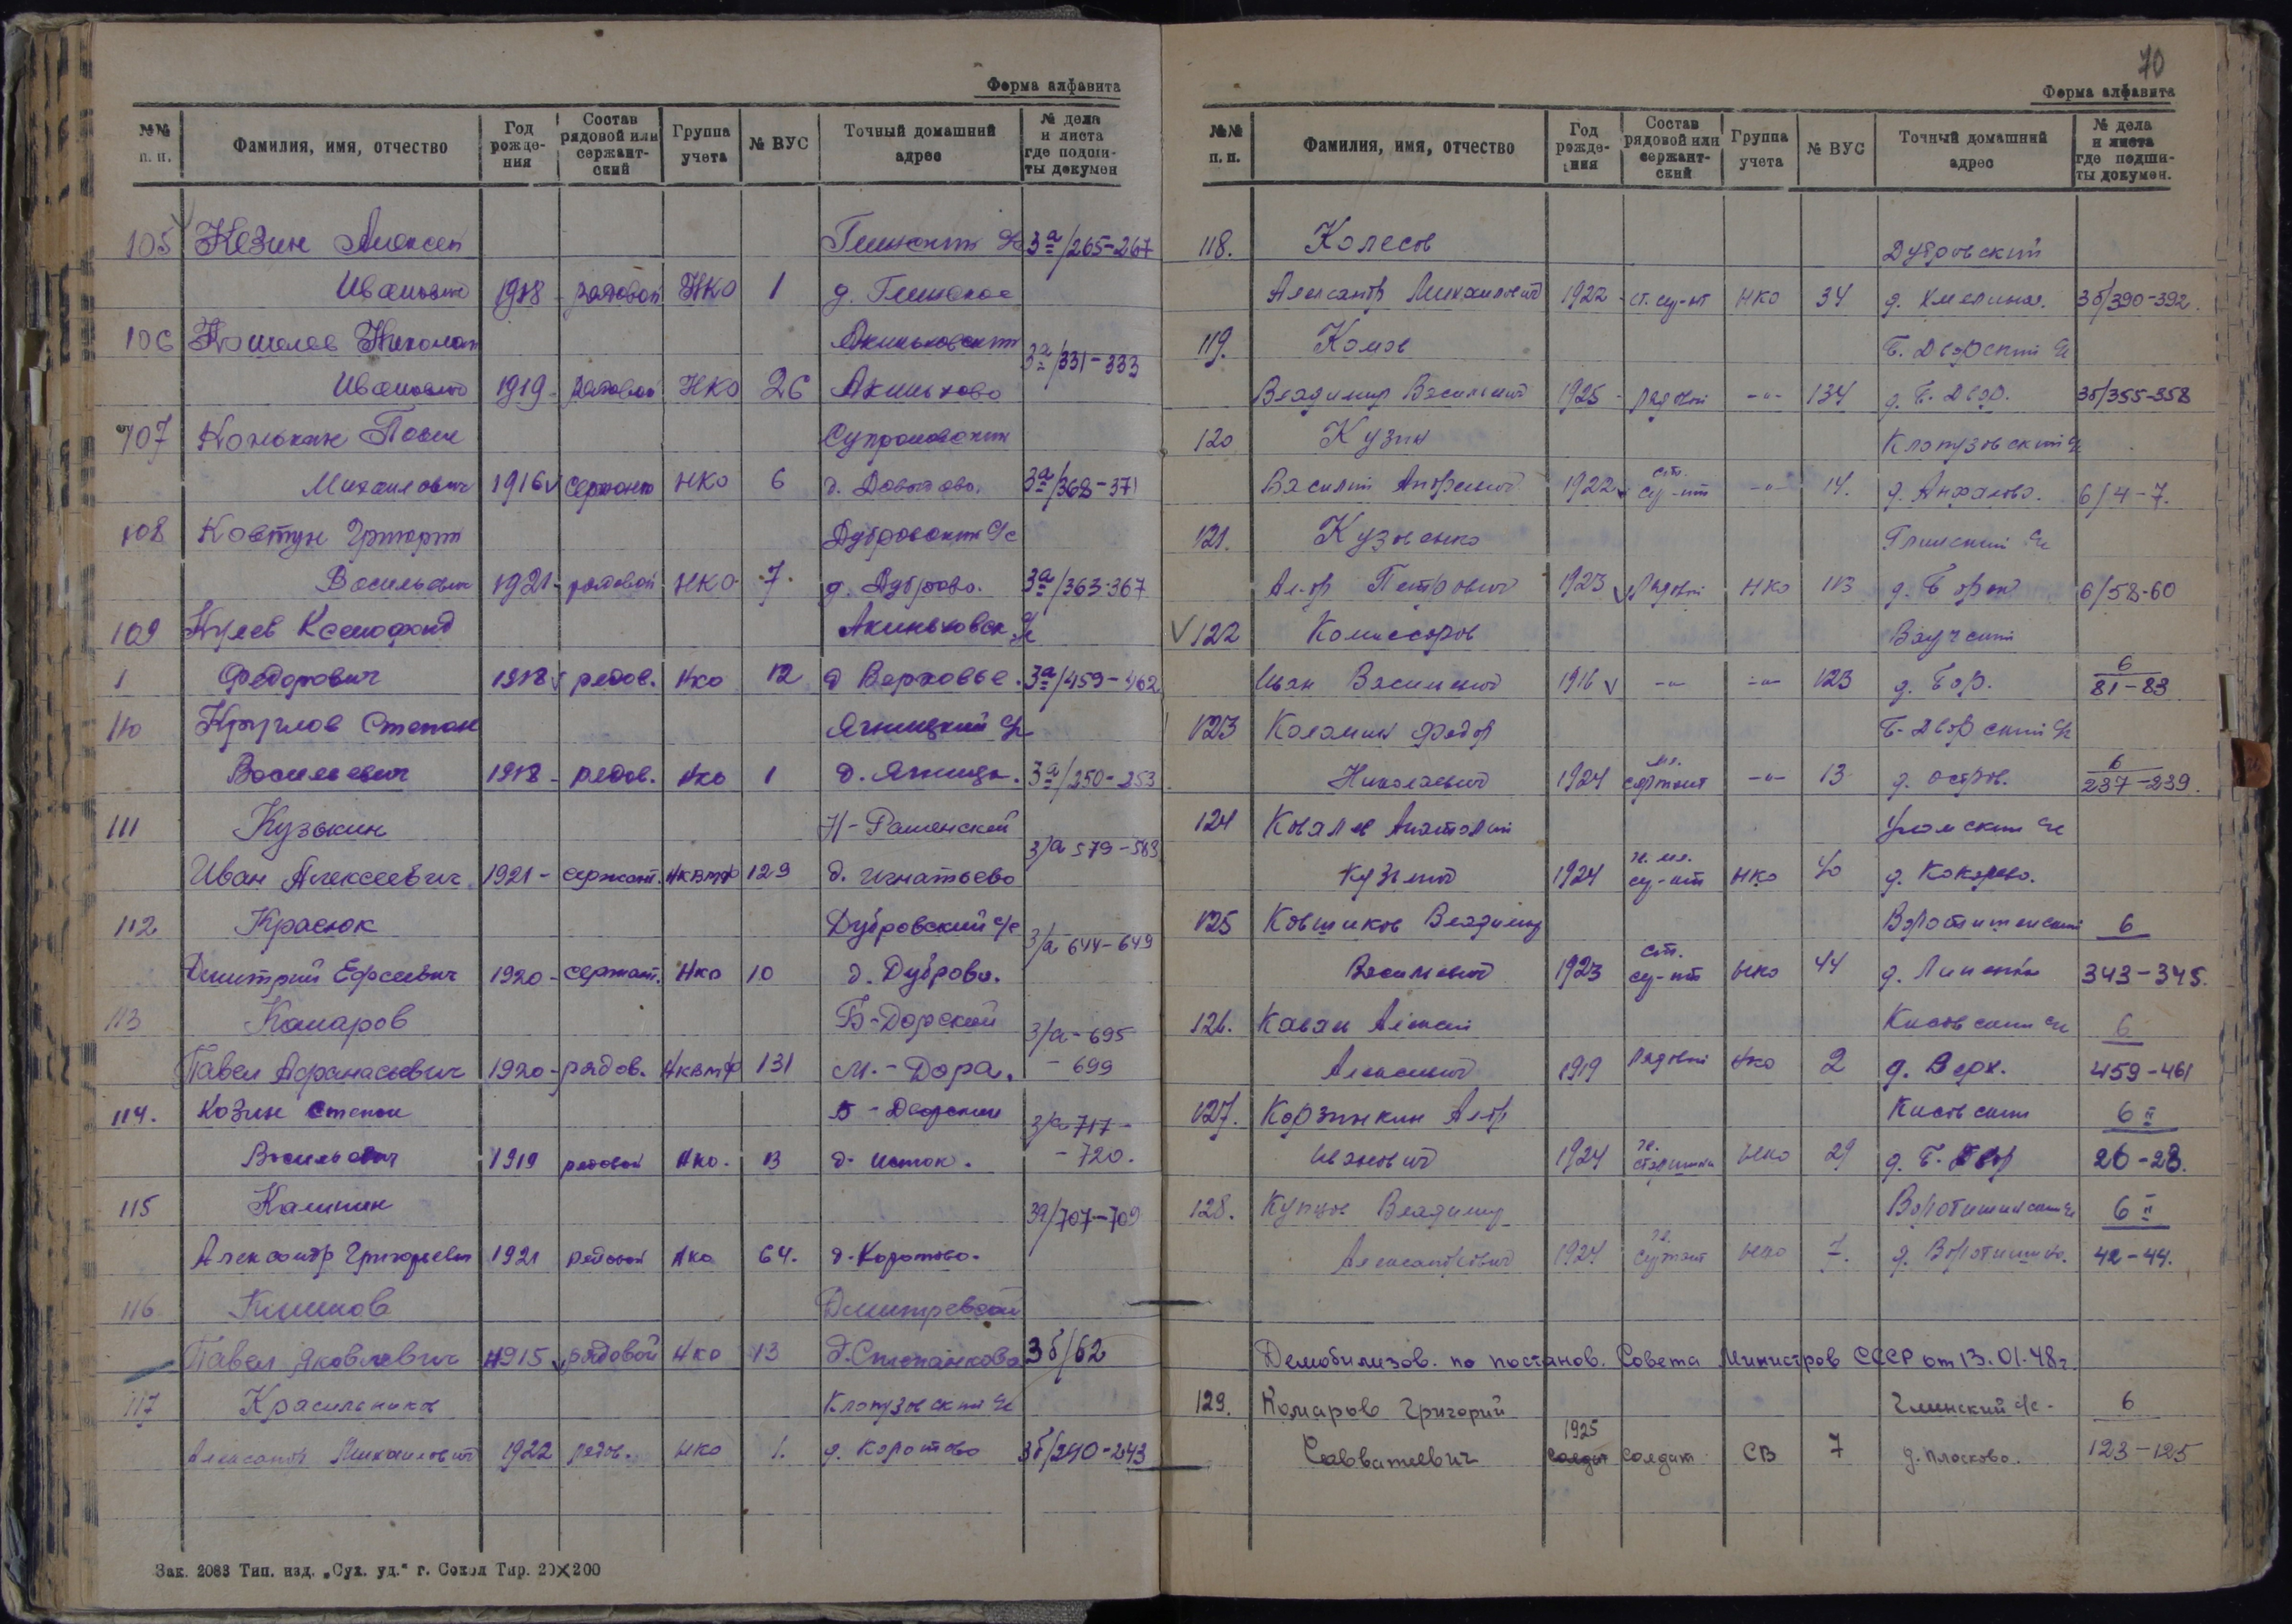 Форма алфавита
№№ п. п. Фамилия, имя, отчество Год рожде- ния Состав рядовой или сержант- ский Группа учета № ВУС Точный домашний адрес № дела и листа где подши- ты докумен
105 Козин Алексей Глинский 3а/265-267
Иванович 1918 - рядовой НКО 1 д. Глинское
106 Кошелев Николай Акиньховский 3а/331-333
Иванович 1919 - рядовой НКО 26 Акиньхово
107 Конькин Павел
Михайлович 1916 сержант НКО 6 д. Давыдово. 3а/368-371
108 Ковтун Григорий Дубровский с/с
Васильевич 1921 - рядовой НКО 7 д. Дуброво. 3а/363-367
109 Кулев Ксенофонд Акиньховск. с/с
Федорович 1918 рядов. Нко 12 д Верховье. 3а/459-462
110 Круглов Степан Ягницкий с/с
Васильевич 1918 - рядов. Нко 1 д. Ягница. 3а/250-253
111 Кузькин Н-Раменский 3/а 579-583
Иван Алексеевич 1921 - сержант. Нквмф 129 д. Игнатьево
112 Красюк Дубровский с/с 3/а 644-649
Дмитрий Ефсеевич 1920 - сержант. Нко 10 д. Дуброво.
113 Комаров Б-Дорской 3/а-695
Павел Афанасьевич 1920 - рядов. Нквмф 131 М.-Дора. - 699
114. Козин Степан Б-Дворский 3/а 717-
Васильевич 1919 рядовой Нко. 13 д. Исток. - 720.
115 Калинин 3а/707-709
Александр Григорьевич 1921 рядовой Нко 64. д. Коротово.
116 Климов
Павел Яковлевич 1915 рядовой Нко 13 д. Степанково 3б/62
117 Красильников Клопузовский с/с
Александр Михайлович 1922 рядов. нко 1. д. Коротово 3б/240-243
Зак. 2083 Тип. изд. „Сух. уд.“ г. Сокол Тир. 20×200
70
Форма алфавита
№№ п. п. Фамилия, имя, отчество Год рожде- ния Состав рядовой или сержант- ский Группа учета № ВУС Точный домашний адрес № дела и листа где подши- ты докумен.
118. Колесов Дубровский
Александр Михайлович 1922 - ст. се-нт НКО 34 д. Хмелина. 3б/390-392.
119. Комов Б. Дворский с/с
Владимир Васильевич 1925 - рядовой -"- 134 д. Б. Двор. 3б/355-358
120 Кузин Клопузовский с/с
Василий Андреевич 1922 ст. се-нт -"- 14. д. Анфалово. 6/4-7.
121. Кузовенко Глинский с/с
Ал-др Петрович 1923 рядовой НКО 113 6/58-60
122 Комиссаров
Иван Васильевич 1916 -"- -"- 123 д. Бор. 6 81-83
123 Коломин Федор Б-Дворский с/с
Николаевич 1924 мл. сержант -"- 13 д. Остров. 6 237-239.
124 Ковалев Анатолий Уломский с/с
Кузьмич 1924 НКО 40 д. Кокорево.
125 Ковшиков Владимир 6
Васильевич 1923 ст. се-нт НКО 44 343-345.
126. Кисовский с/с 6
1919 рядовой Нко 2 д. Верх. 459-461
127. Корзинкин Ал-др Кисовский 6 II
Иванович 1924 гв. старшина НКО 29 д. Б. Двор 26-28.
128. Купцов Владимир Воротишинский с/с 6 II
Александрович 1924 гв. сержант НКО 7. д. Воротишино. 42-44.
Демобилизов. по постанов. Совета Министров СССР от 13.01.48г.
129. Комаров Григорий Глинский с/с - 6
Савватиевич 1925 солдат солдат СВ 7 д. Плосково. 123-125